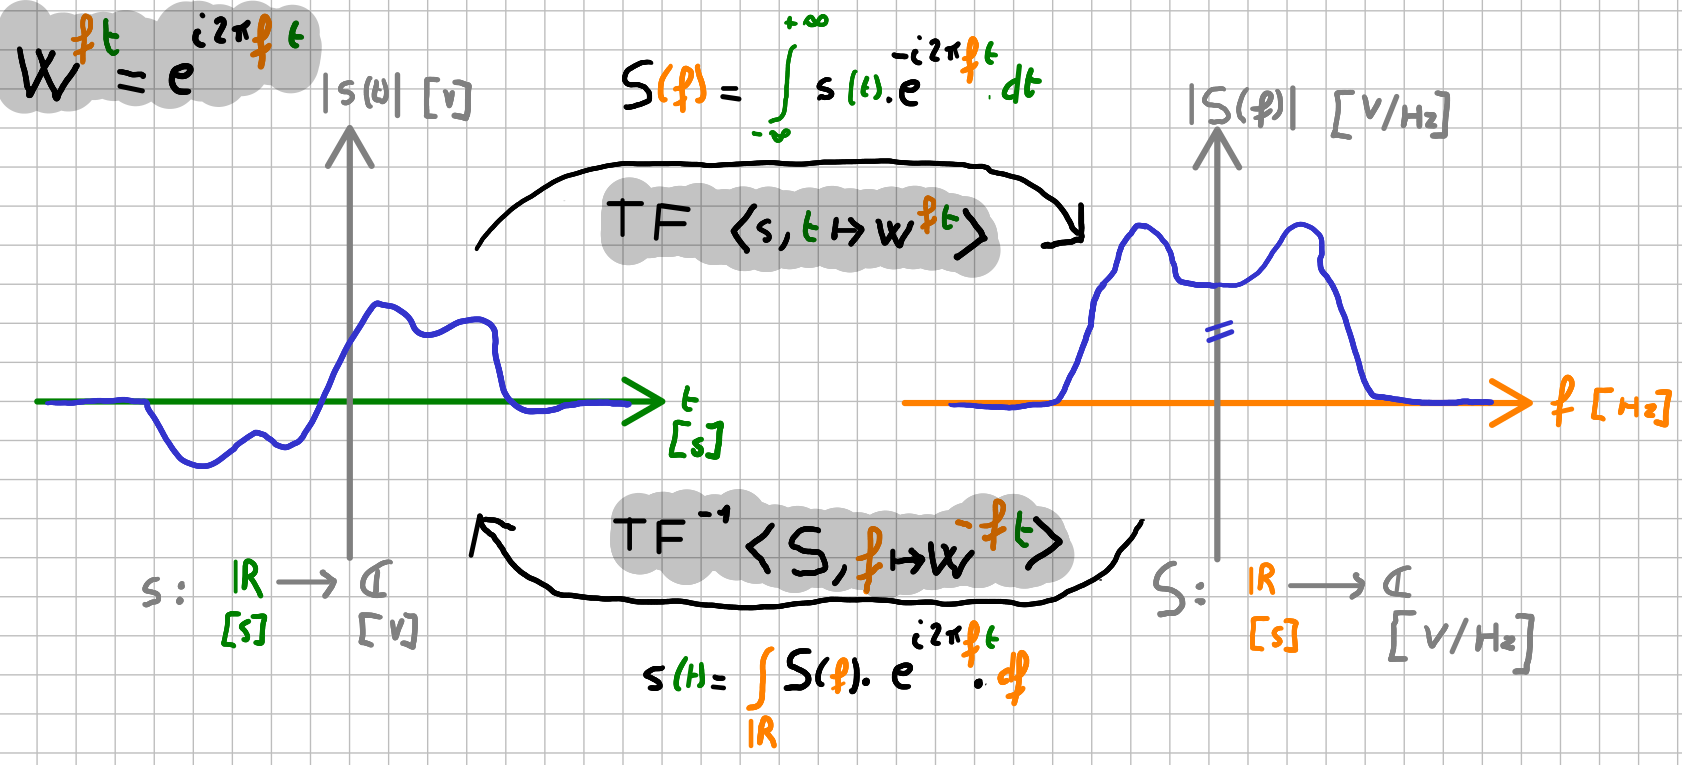 W^{ft} = e^{i2πft}
|s(t)| [V]
S(f) = ∫_{-∞}^{+∞} s(t).e^{-i2πft}.dt
|S(f)| [V/Hz]
TF <s, t ↦ W^{ft}>
t
[s]
f [Hz]
TF^{-1} <S, f ↦ W^{-ft}>
s: ℝ → ℂ
[s] [V]
S: ℝ → ℂ
[s] [V/Hz]
s(t) = ∫_{ℝ} S(f). e^{i2πft}. df